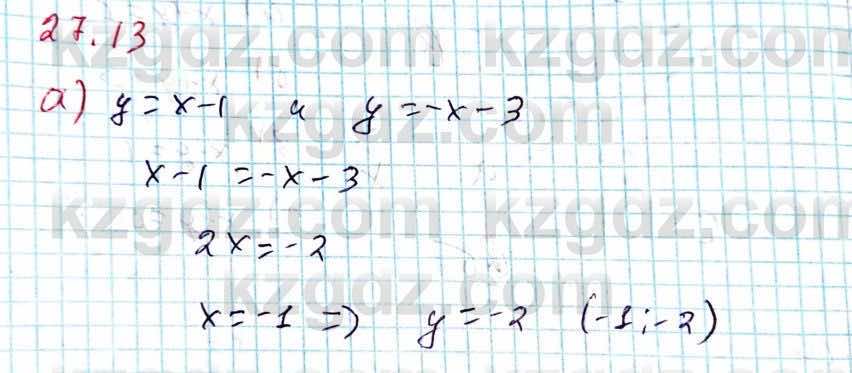 27.13
kzgdz.com kzgdz.com
а) y = x - 1 и y = -x - 3
kzgdz.com
x - 1 = -x - 3
kzgdz.com kzgdz.com
2x = -2
kzgdz.com
x = -1 => y = -2 (-1; -2)